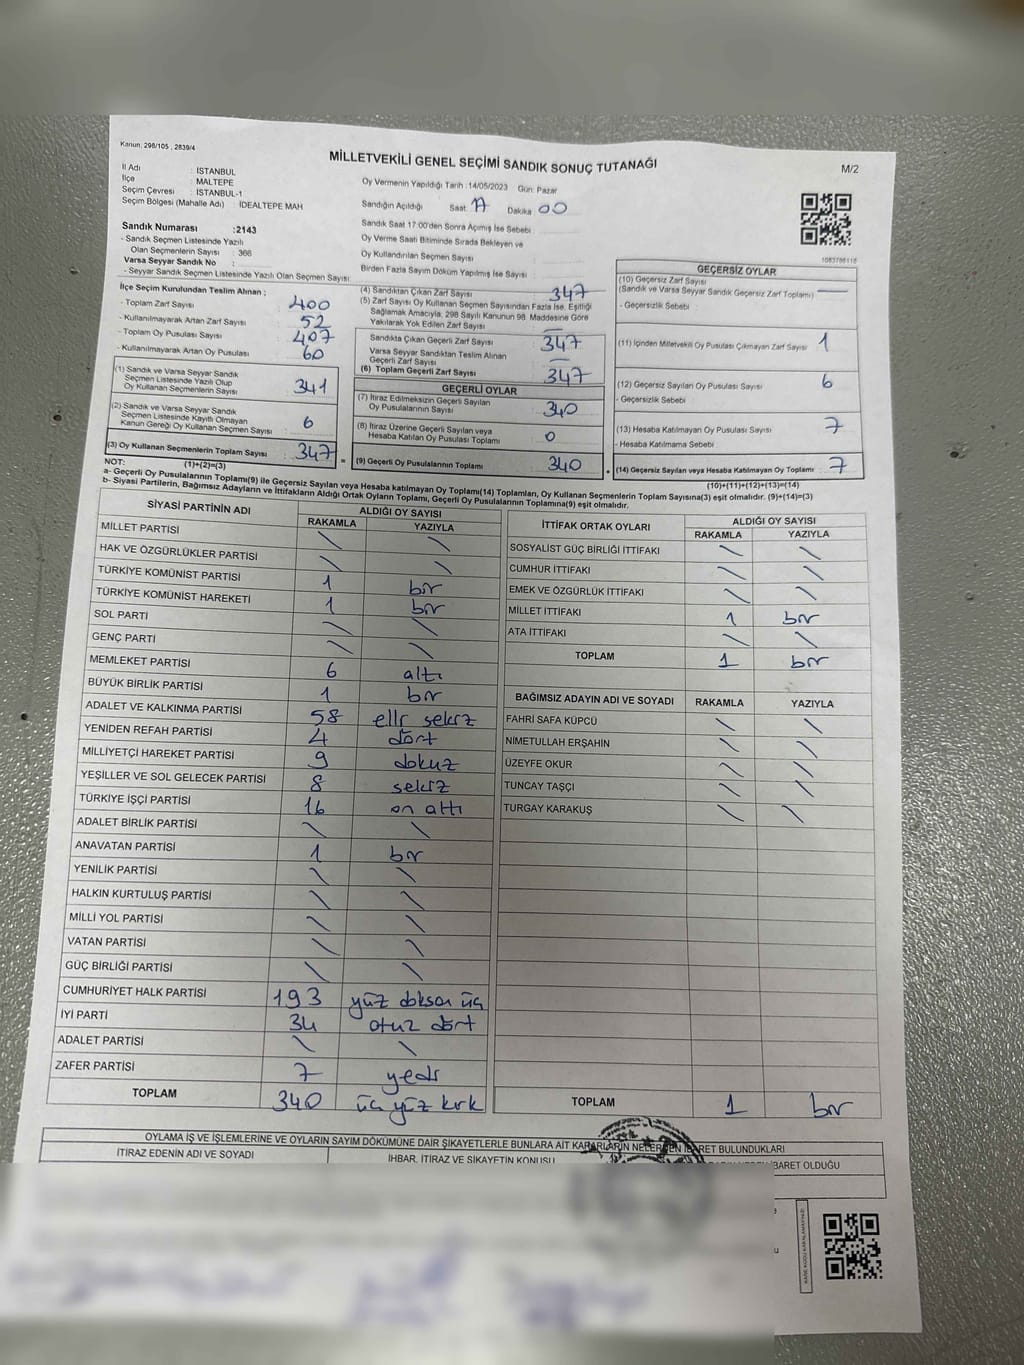 Kanun: 298/105 , 2839/4
MİLLETVEKİLİ GENEL SEÇİMİ SANDIK SONUÇ TUTANAĞI
M/2
İl Adı : İSTANBUL
İlçe : MALTEPE
Seçim Çevresi : İSTANBUL-1
Seçim Bölgesi (Mahalle Adı) : İDEALTEPE MAH
Oy Vermenin Yapıldığı Tarih :14/05/2023 Gün: Pazar
Sandığın Açıldığı Saat: 17 Dakika 00
Sandık Saat 17:00'den Sonra Açılmış İse Sebebi :
Oy Verme Saati Bitiminde Sırada Bekleyen ve
Oy Kullandırılan Seçmen Sayısı :
Birden Fazla Sayım Döküm Yapılmış İse Sayısı :
Sandık Numarası :2143
- Sandık Seçmen Listesinde Yazılı
Olan Seçmenlerin Sayısı : 366
Varsa Seyyar Sandık No :
- Seyyar Sandık Seçmen Listesinde Yazılı Olan Seçmen Sayısı
İlçe Seçim Kurulundan Teslim Alınan ;
- Toplam Zarf Sayısı : 400
- Kullanılmayarak Artan Zarf Sayısı : 52
- Toplam Oy Pusulası Sayısı : 407
- Kullanılmayarak Artan Oy Pusulası : 60
(1) Sandık ve Varsa Seyyar Sandık
Seçmen Listesinde Yazılı Olup
Oy Kullanan Seçmenlerin Sayısı : 341
(2) Sandık ve Varsa Seyyar Sandık
Seçmen Listesinde Kayıtlı Olmayan
Kanun Gereği Oy Kullanan Seçmen Sayısı : 6
(3) Oy Kullanan Seçmenlerin Toplam Sayısı : 347
(1)+(2)=(3)
(4) Sandıktan Çıkan Zarf Sayısı : 347
(5) Zarf Sayısı Oy Kullanan Seçmen Sayısından Fazla İse, Eşitliği
Sağlamak Amacıyla, 298 Sayılı Kanunun 98. Maddesine Göre
Yakılarak Yok Edilen Zarf Sayısı : —
Sandıkta Çıkan Geçerli Zarf Sayısı : 347
Varsa Seyyar Sandıktan Teslim Alınan
Geçerli Zarf Sayısı : —
(6) Toplam Geçerli Zarf Sayısı : 347
GEÇERLİ OYLAR
(7) İtiraz Edilmeksizin Geçerli Sayılan
Oy Pusulalarının Sayısı : 340
(8) İtiraz Üzerine Geçerli Sayılan veya
Hesaba Katılan Oy Pusulası Toplamı : 0
= (9) Geçerli Oy Pusulalarının Toplamı : 340
1083786118
GEÇERSİZ OYLAR
(10) Geçersiz Zarf Sayısı
(Sandık ve Varsa Seyyar Sandık Geçersiz Zarf Toplamı) : —
- Geçersizlik Sebebi :
(11) İçinden Milletvekili Oy Pusulası Çıkmayan Zarf Sayısı : 1
(12) Geçersiz Sayılan Oy Pusulası Sayısı : 6
- Geçersizlik Sebebi :
(13) Hesaba Katılmayan Oy Pusulası Sayısı : 7
- Hesaba Katılmama Sebebi :
+ (14) Geçersiz Sayılan veya Hesaba Katılmayan Oy Toplamı : 7
(10)+(11)+(12)+(13)=(14)
NOT:
a- Geçerli Oy Pusulalarının Toplamı(9) ile Geçersiz Sayılan veya Hesaba katılmayan Oy Toplamı(14) Toplamları, Oy Kullanan Seçmenlerin Toplam Sayısına(3) eşit olmalıdır. (9)+(14)=(3)
b- Siyasi Partilerin, Bağımsız Adayların ve İttifakların Aldığı Ortak Oyların Toplamı, Geçerli Oy Pusulalarının Toplamına(9) eşit olmalıdır.
SİYASİ PARTİNİN ADI ALDIĞI OY SAYISI
RAKAMLA YAZIYLA
MİLLET PARTİSİ \ \
HAK VE ÖZGÜRLÜKLER PARTİSİ \ \
TÜRKİYE KOMÜNİST PARTİSİ 1 bir
TÜRKİYE KOMÜNİST HAREKETİ 1 bir
SOL PARTİ \ \
GENÇ PARTİ \ \
MEMLEKET PARTİSİ 6 altı
BÜYÜK BİRLİK PARTİSİ 1 bir
ADALET VE KALKINMA PARTİSİ 58 elli sekiz
YENİDEN REFAH PARTİSİ 4 dört
MİLLİYETÇİ HAREKET PARTİSİ 9 dokuz
YEŞİLLER VE SOL GELECEK PARTİSİ 8 sekiz
TÜRKİYE İŞÇİ PARTİSİ 16 on altı
ADALET BİRLİK PARTİSİ \ \
ANAVATAN PARTİSİ 1 bir
YENİLİK PARTİSİ \ \
HALKIN KURTULUŞ PARTİSİ \ \
MİLLİ YOL PARTİSİ \ \
VATAN PARTİSİ \ \
GÜÇ BİRLİĞİ PARTİSİ \ \
CUMHURİYET HALK PARTİSİ 193 yüz doksan üç
İYİ PARTİ 34 otuz dört
ADALET PARTİSİ \ \
ZAFER PARTİSİ 7 yedi
TOPLAM 340 üç yüz kırk
İTTİFAK ORTAK OYLARI ALDIĞI OY SAYISI
RAKAMLA YAZIYLA
SOSYALİST GÜÇ BİRLİĞİ İTTİFAKI \ \
CUMHUR İTTİFAKI \ \
EMEK VE ÖZGÜRLÜK İTTİFAKI \ \
MİLLET İTTİFAKI 1 bir
ATA İTTİFAKI \ \
TOPLAM 1 bir
BAĞIMSIZ ADAYIN ADI VE SOYADI RAKAMLA YAZIYLA
FAHRİ SAFA KÜPCÜ \ \
NİMETULLAH ERŞAHİN \ \
ÜZEYFE OKUR \ \
TUNCAY TAŞÇI \ \
TURGAY KARAKUŞ \ \
TOPLAM 1 bir
OYLAMA İŞ VE İŞLEMLERİNE VE OYLARIN SAYIM DÖKÜMÜNE DAİR ŞİKAYETLERLE BUNLARA AİT KARARLARIN NELERDEN İBARET BULUNDUKLARI
İTİRAZ EDENİN ADI VE SOYADI İHBAR, İTİRAZ VE ŞİKAYETİN KONUSU İBARET OLDUĞU